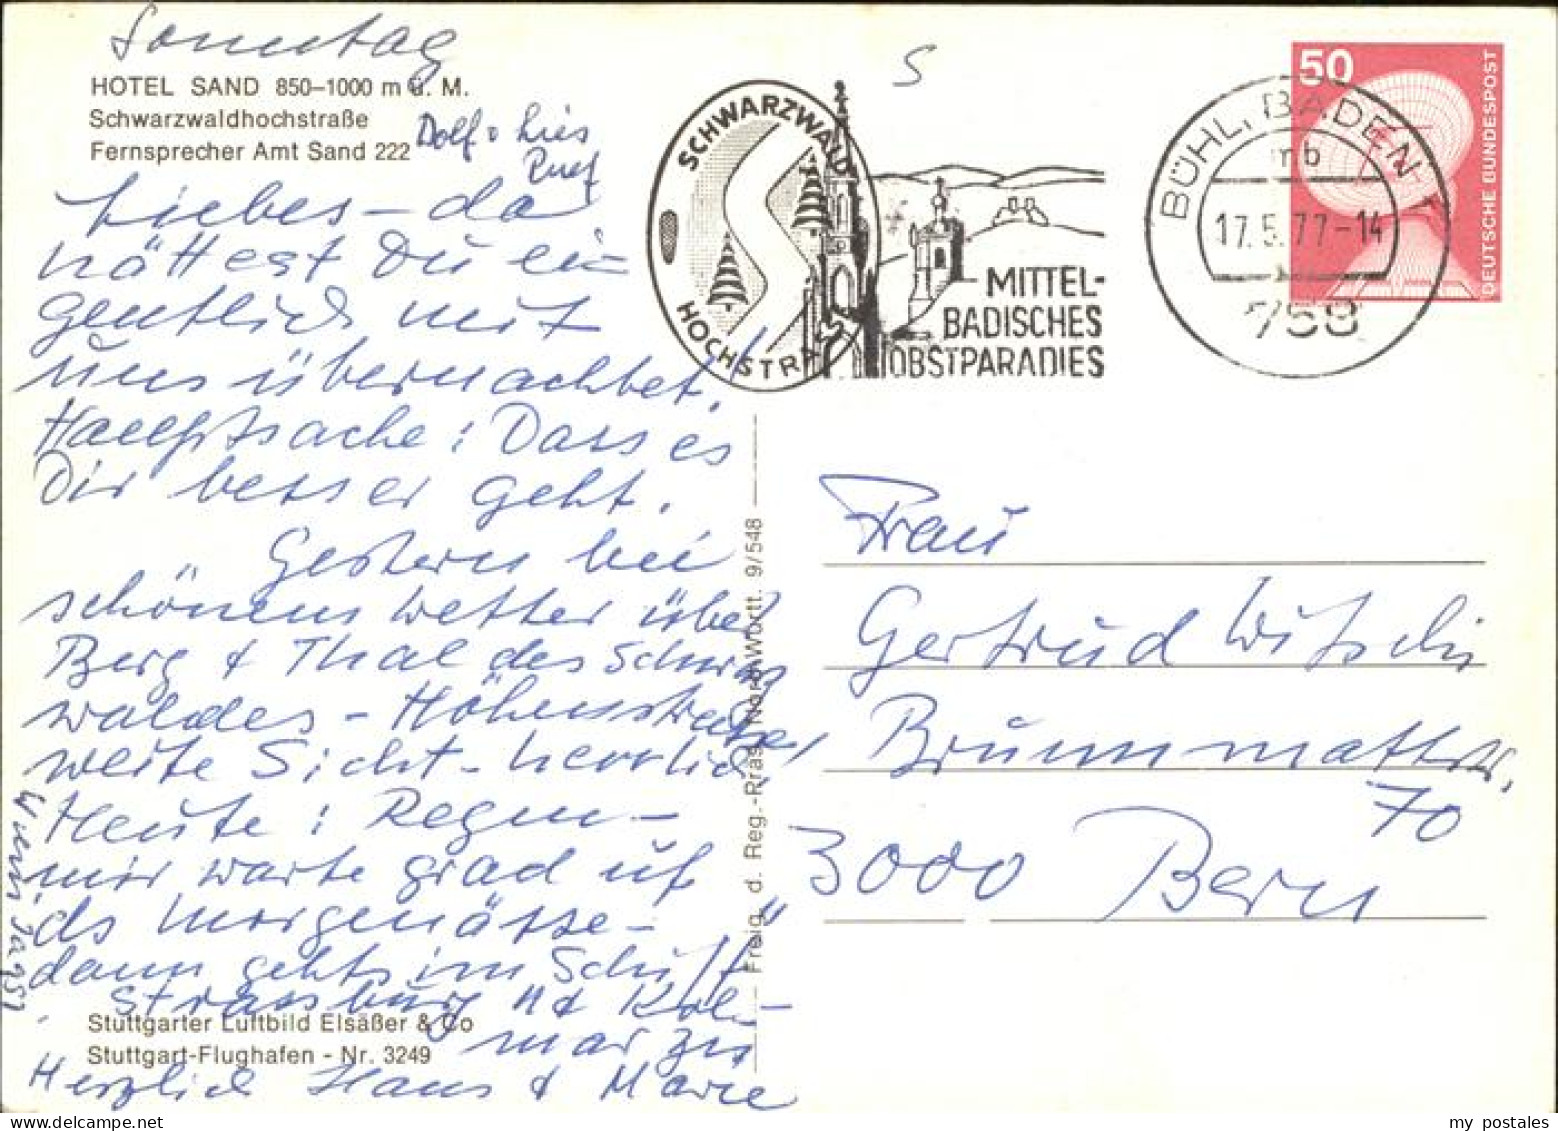 Sonntag
HOTEL SAND 850–1000 m ü. M.
Schwarzwaldhochstraße
Fernsprecher Amt Sand 222
Dolf + Lies
Ruef
Liebes – da
hättest Du ei-
gentlich mit
uns übernachtet!
Hauptsache: Dass es
Dir besser geht.
Gestern bei
schönem Wetter über
Berg & Thal des Schwarz
waldes – Höhenstrasse
weite Sicht – herrlich!
Heute: Regen –
mir warte grad uf
ds Morgenässe –
dann gehts im Schuss
Strassburg & Kol-
mar zu
Herzlich Hans & Marie
Stuttgarter Luftbild Elsäßer & Co
Stuttgart-Flughafen - Nr. 3249
Freig. d. Reg.-Präs. Nordwürtt. 9/548
S
SCHWARZWALD
HOCHSTRASSE
MITTEL-
BADISCHES
OBSTPARADIES
BÜHL, BADEN
mb
17.5.77-14
758
50
DEUTSCHE BUNDESPOST
Frau
Gertrud Witschi
Brunnmattstr.
70
3000 Bern
my postales